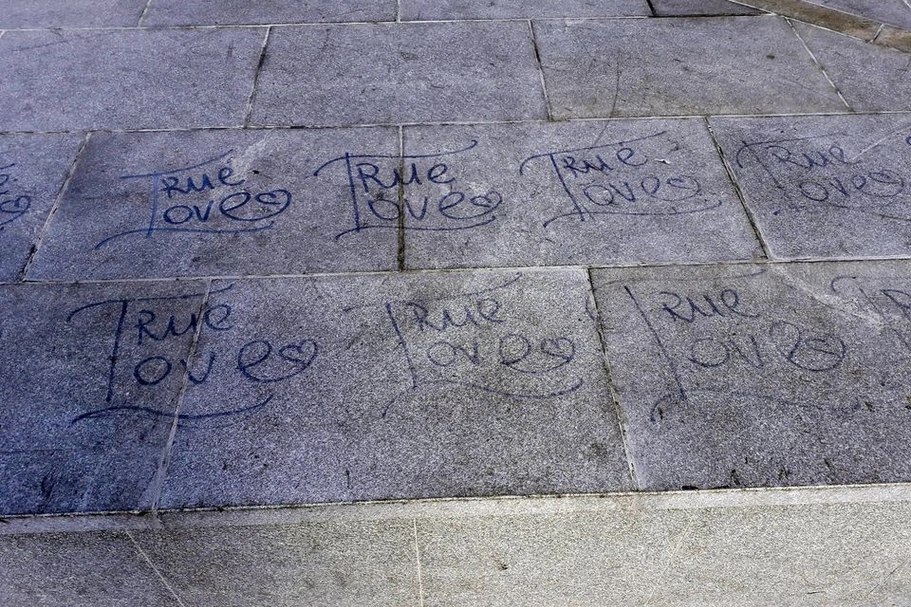 True
Love
True
Love
True
Love
True
Love
True
Love
True
Love
True
Love